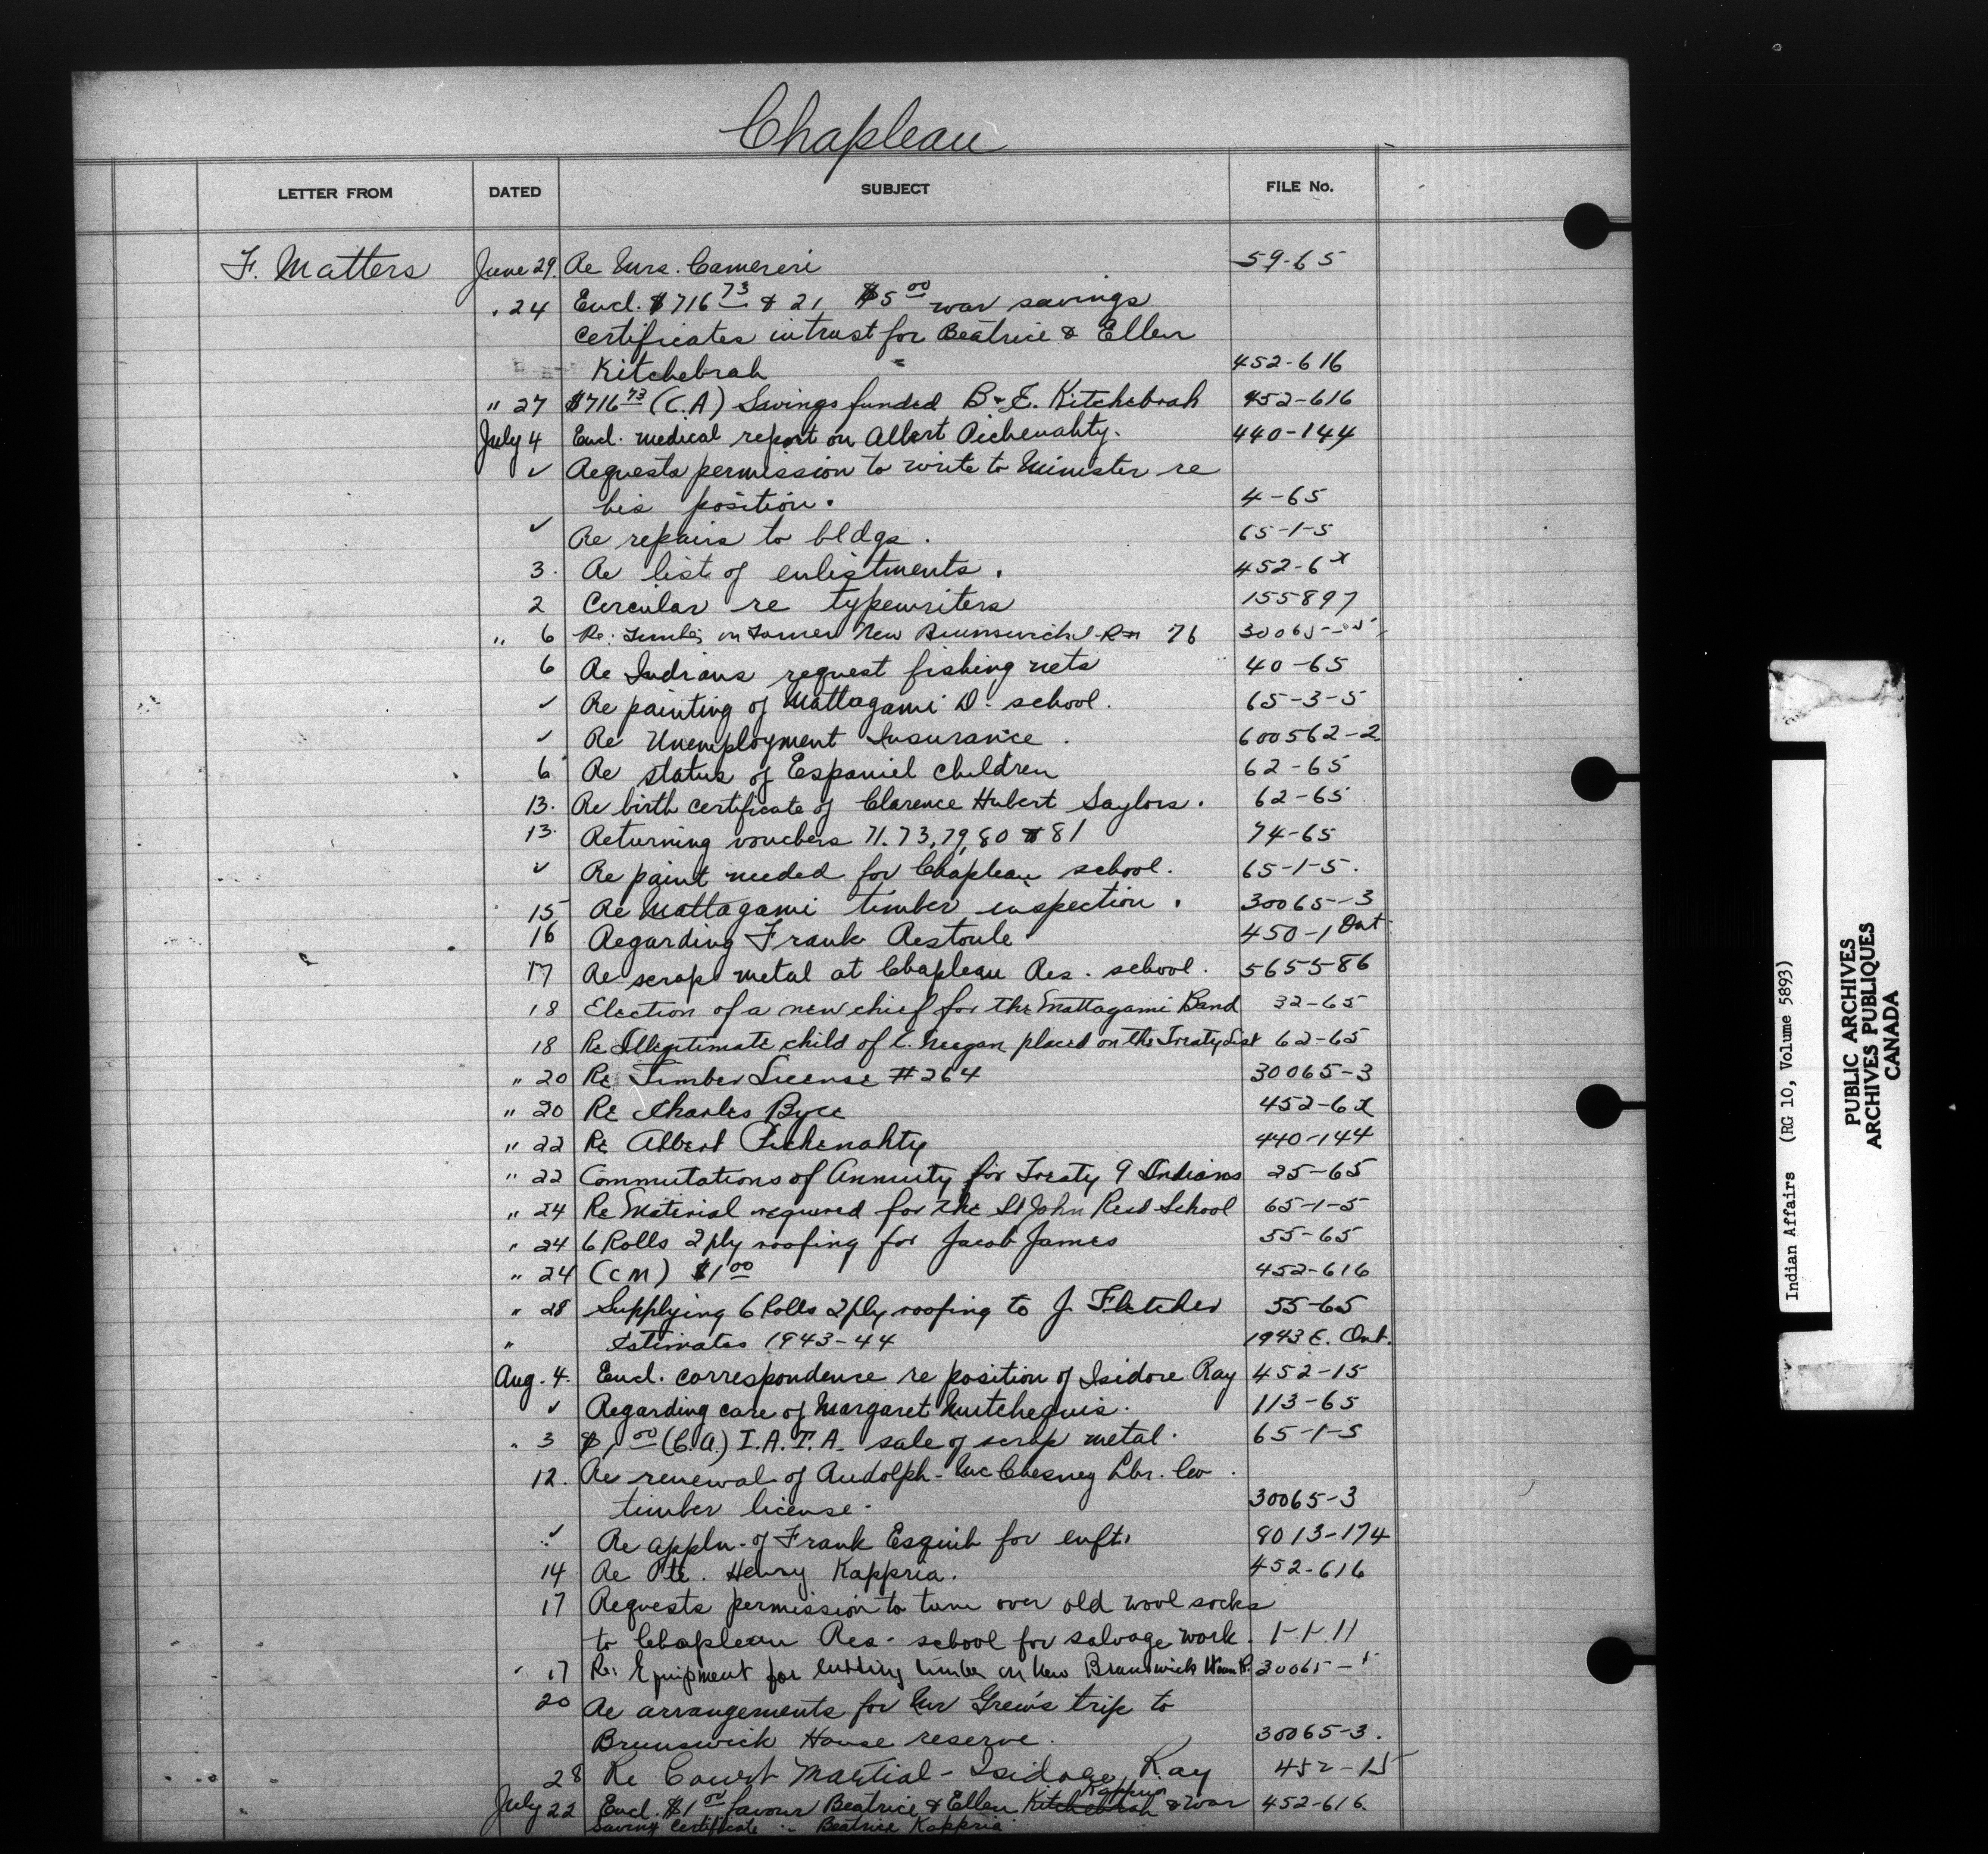 Chapleau
LETTER FROM DATED SUBJECT FILE No.
F. Matters June 29. Re Mrs. Camereri 59-65
" 24 Encl. $716 73 & 21 $5 00 war savings
certificates in trust for Beatrice & Ellen
Kitchebrah 452-616
" 27 $716 73 (C.A) Savings funded B & E. Kitchebrah 452-616
July 4 Encl. medical report on Albert Pichenahty. 440-144
✓ Requests permission to write to Minister re
his position. 4-65
✓ Re repairs to bldgs. 65-1-5
3. Re list of enlistments. 452-6x
2 Circular re typewriters 155897
" 6 Re: Timber on Former New Brunswick I.R. 76 30065-
6 Re Indians request fishing nets 40-65
✓ Re painting of Mattagami D. school. 65-3-5
✓ Re Unemployment Insurance. 600562-2
6 Re status of Espaniel children 62-65
13. Re birth certificate of Clarence Hubert Saylors. 62-65
13. Returning vouchers 71. 73, 79, 80 & 81 74-65
✓ Re paint needed for Chapleau school. 65-1-5.
15 Re Mattagami timber inspection. 30065-3
16 Regarding Frank Restoule 450-1 Ont
17 Re scrap metal at Chapleau Res. school. 5655-86
18 Election of a new chief for the Mattagami Band 32-65
18 Re Illegitimate child of C. Neegan placed on the Treaty List 62-65
" 20 Re Timber License #264 30065-3
" 20 Re Charles Byce 452-6x
" 22 Re Albert Pichenahty 440-144
" 22 Commutations of Annuity for Treaty 9 Indians 25-65
" 24 Re Material required for the St John Resd School 65-1-5
" 24 6 Rolls 2 ply roofing for Jacob James 55-65
" 24 (CM) $1 00 452-616
" 28 Supplying 6 Rolls 2 ply roofing to J. Fletcher 55-65
" Estimates 1943-44 1943 E. Ont.
Aug. 4. Encl. correspondence re position of Isidore Ray 452-15
✓ Regarding care of Margaret Mutchequis. 113-65
" 3 $1 00 (C.A.) I.A.T.A. sale of scrap metal. 65-1-5
12. Re renewal of Rudolph-McChesney Lbr. Co.
timber license. 30065-3
✓ Re appln. of Frank Esquib for enft. 8013-174
14 Re Pte. Henry Kappria. 452-616
17 Requests permission to turn over old wool socks
to Chapleau Res. school for salvage work. 1-1-11
" 17 Re: Equipment for cutting timber on New Brunswick House R. 30065-
20 Re arrangements for Mr Grew's trip to
Brunswick House reserve. 30065-3.
28 Re Court Martial - Isidore Ray 452-15
Kappria
July 22 Encl. $1 00 favour Beatrice & Ellen Kitchebrah & War 452-616.
Saving Certificate " Beatrice Kappria
Indian Affairs (RG 10, Volume 5893)
PUBLIC ARCHIVES
ARCHIVES PUBLIQUES
CANADA